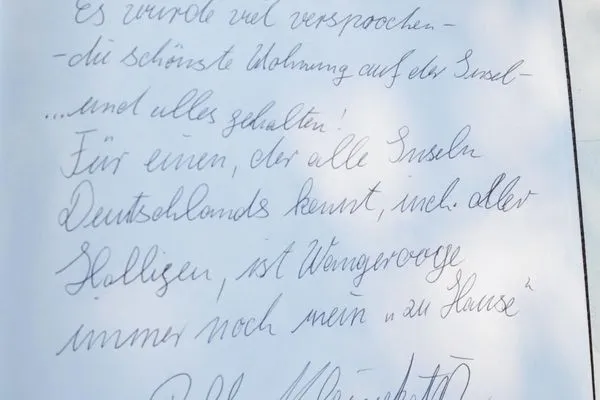 Es wurde viel versprochen –
– die schönste Wohnung auf der Insel –
... und alles gehalten!
Für einen, der alle Inseln
Deutschlands kennt, incl. aller
Halligen, ist Wangerooge
immer noch mein „zu Hause“